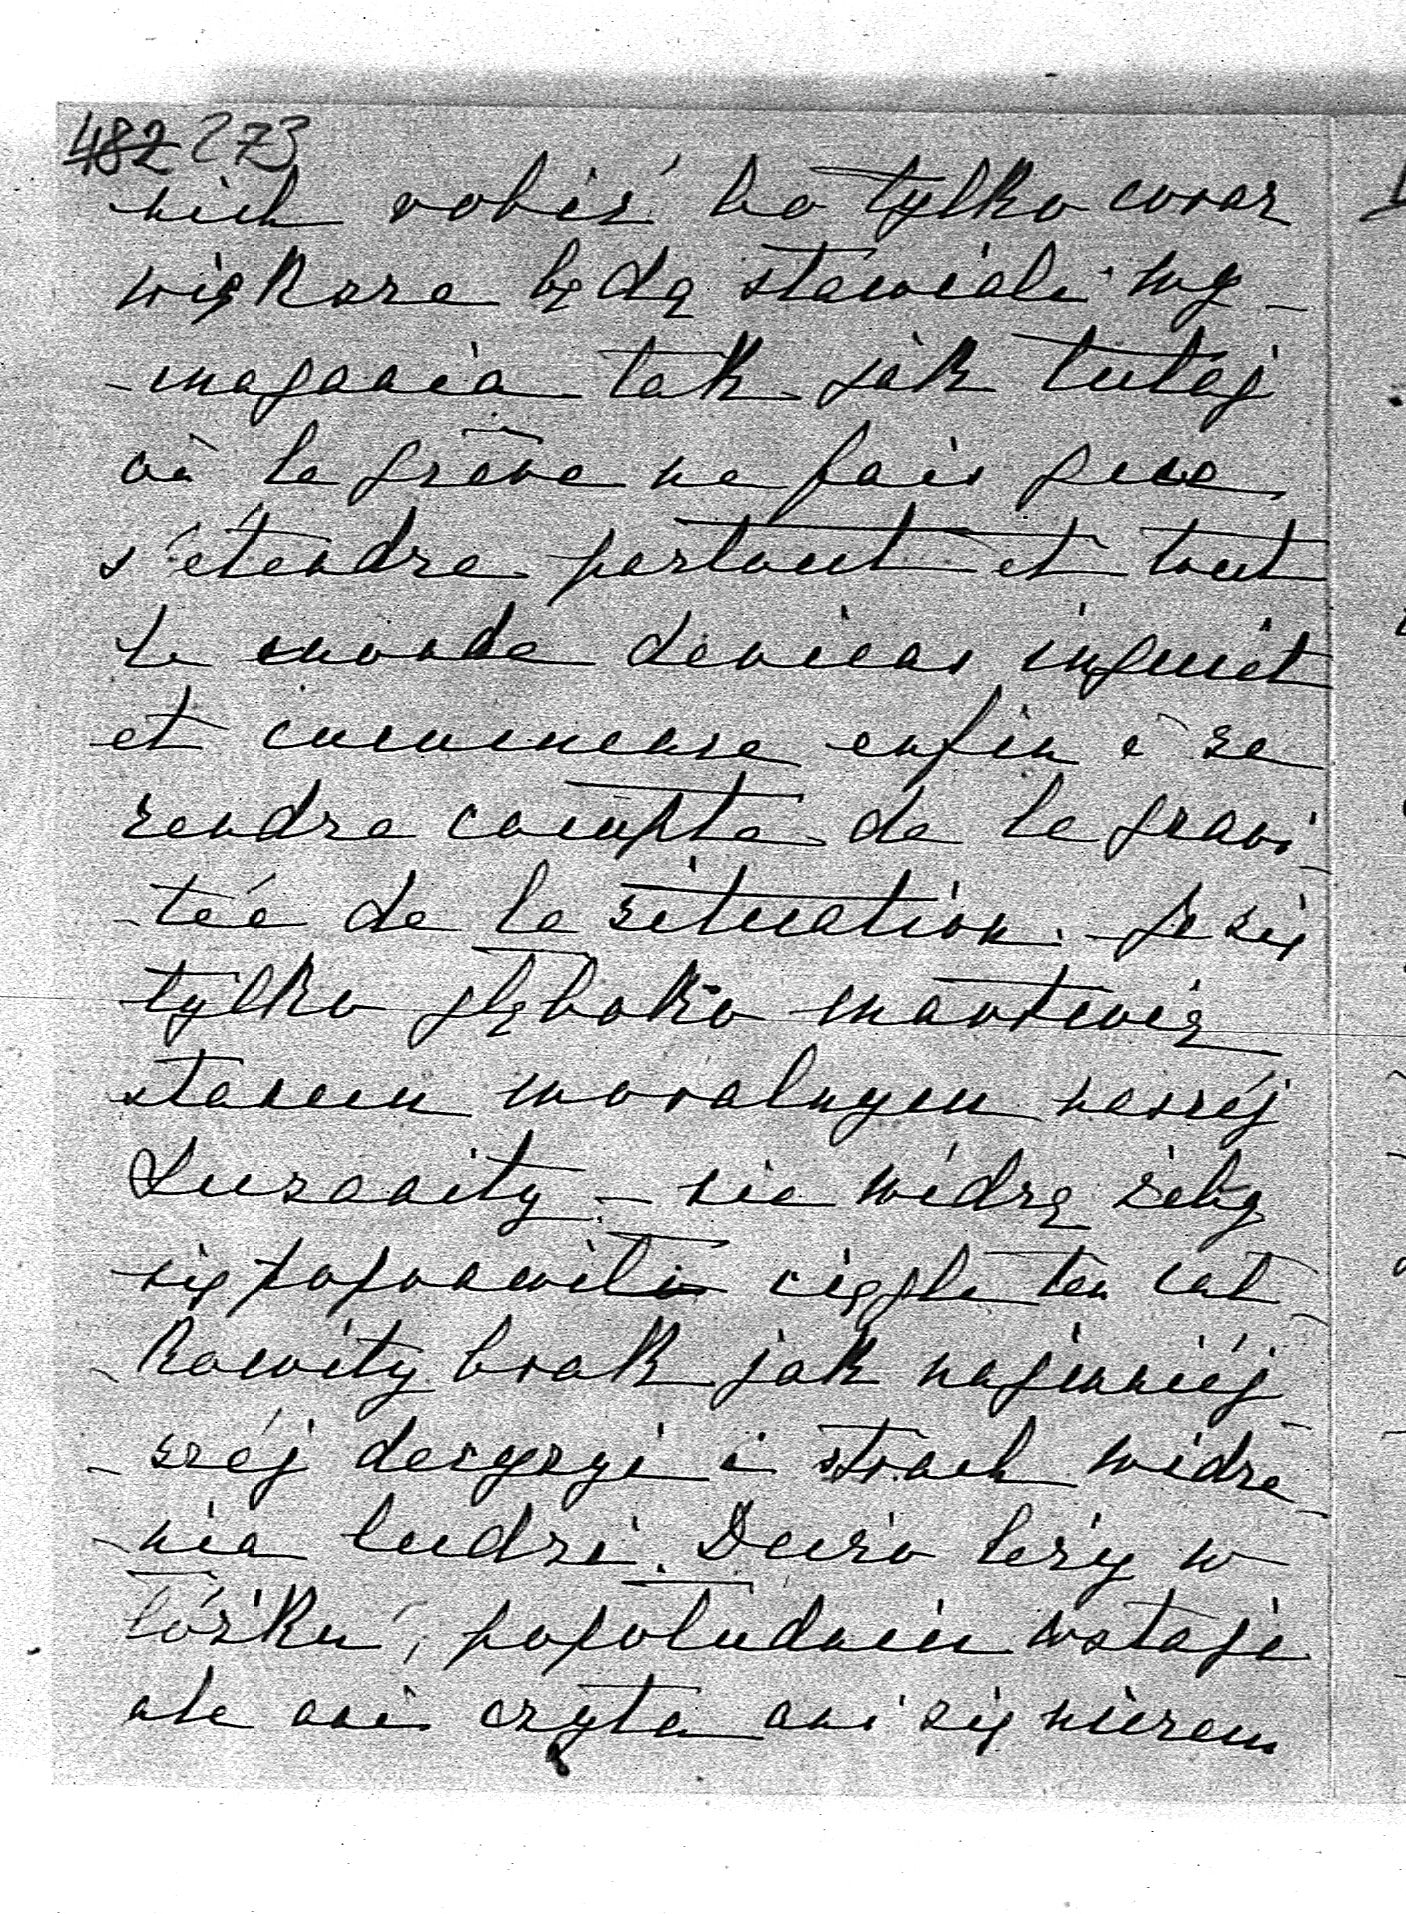 482 273
nich robić bo tylko coraz
większe będą stawiali wy-
-magania tak jak tutaj
où la grève ne fais que
s'étendre partout et tout
le monde deviens inquiet
et commence enfin à se
rendre compte de la gravi-
-tée de la situation. Ja się
tylko głęboko martwię
stanem moralnym naszéj
Zuzanity – nie widzę żeby
się poprawiło ciągle ten cał-
-kowity brak jak najmniéj
-széj decyzyi i strach widze-
-nia ludzi. Dużo leży w
łóżku, popołudniu wstaje
ale ani czyta ani się niczem